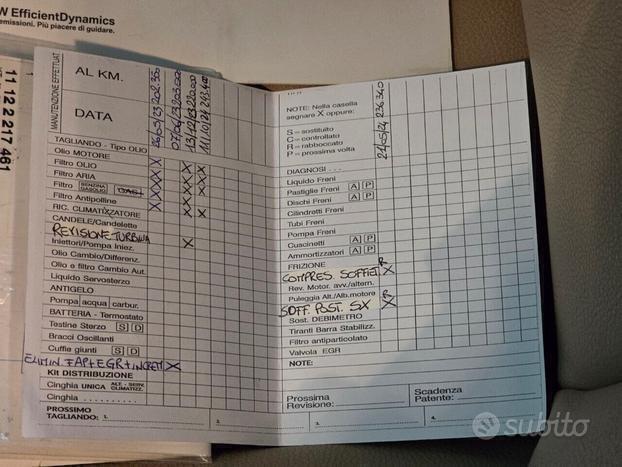 W EfficientDynamics
emissioni. Più piacere di guidare.
11 12 2 217 461
MANUTENZIONE EFFETTUAT.
AL KM.
DATA
26/05/23 202.350
07/06/23 203.000
13/12/23 220.000
11/10/24 243.400
TAGLIANDO - Tipo OLIO
Olio MOTORE
Filtro OLIO
Filtro ARIA
Filtro BENZINA GASOLIO GAS
Filtro Antipolline
RIC. CLIMATIZZATORE
CANDELE/Candelette
REVISIONE TURBINA
Iniettori/Pompa Iniez.
Olio Cambio/Differenz.
Olio e filtro Cambio Aut.
Liquido Servosterzo
ANTIGELO
Pompa acqua carbur.
BATTERIA - Termostato
Testine Sterzo S D
Bracci Oscillanti
Cuffie giunti S D
ELIMIN. FAP+EGR+
KIt DISTRIBUZIONE
Cinghia UNICA ALT. - SERV. CLIMATIZZ.
Cinghia . . . . . . . . . .
PROSSIMO
TAGLIANDO: 1. 2. 3. 4.
NOTE: Nella casella
segnare X oppure:
S = sostituito
C = controllato
R = rabboccato
P = prossima volta
21/05/24 236.340
DIAGNOSI . . .
Liquido Freni
Pastiglie Freni A P
Dischi Freni A P
Cilindretti Freni
Tubi Freni
Pompa Freni
Cuscinetti A P
Ammortizzatori A P
FRIZIONE
COMPRES. SOFFIET. R
Rev. Motor. avv./altern.
Puleggia Alt./Alb.motore
SOFF. POST. SX R
Sost. DEBIMETRO
Tiranti Barra Stabilizz.
Filtro antiparticolato
Valvola EGR
NOTE:
Prossima
Revisione:
Scadenza
Patente:
subito